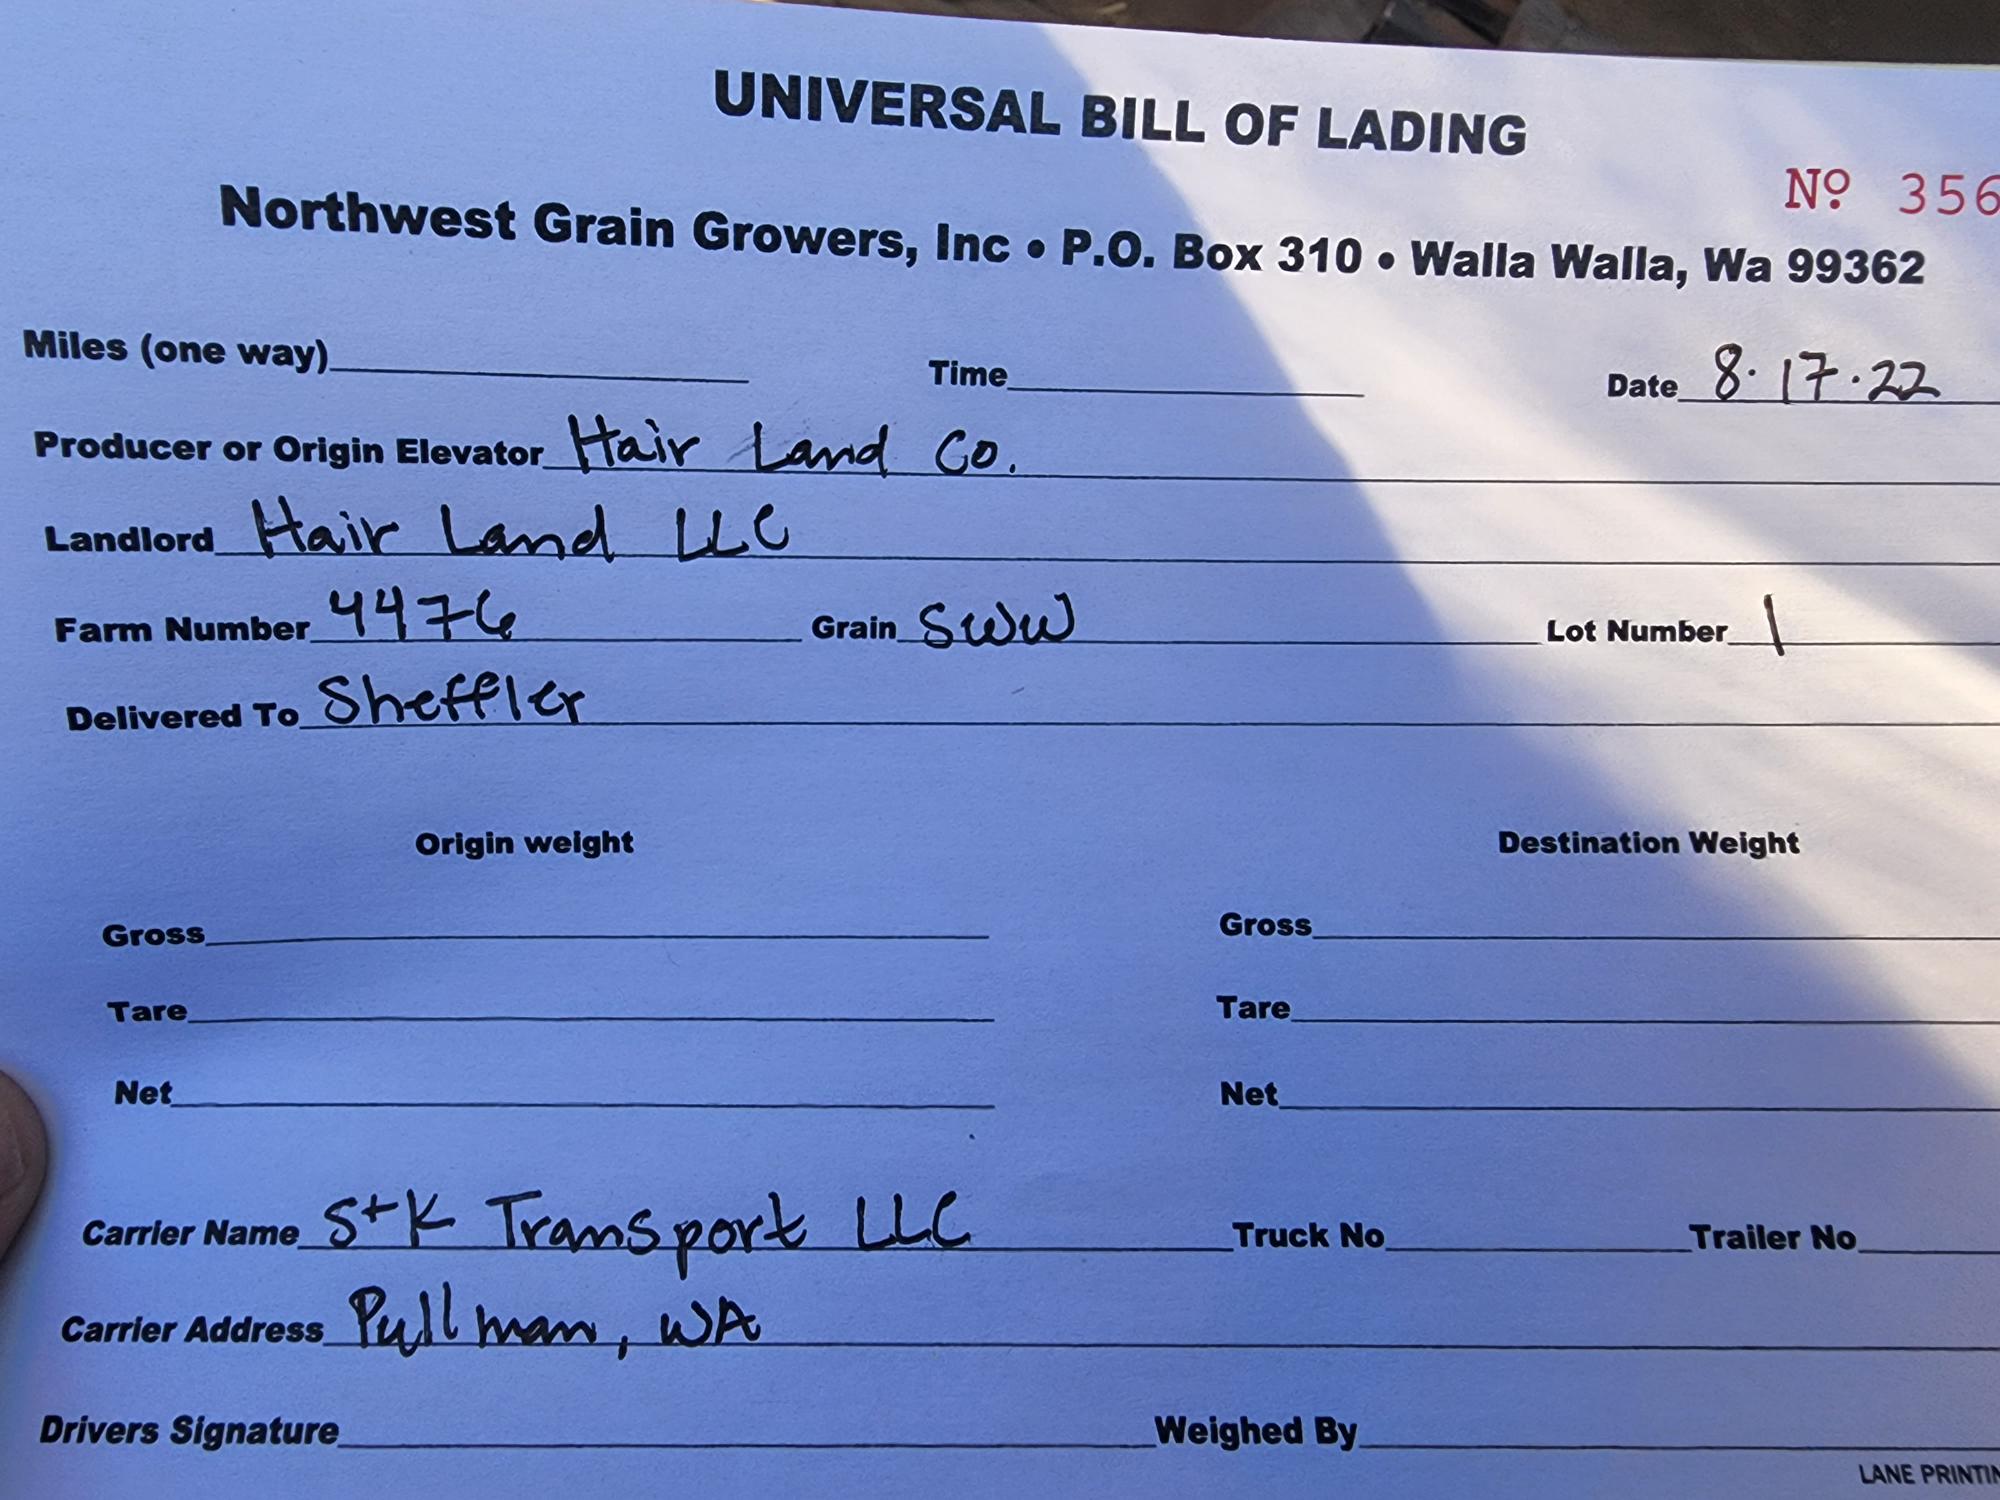 UNIVERSAL BILL OF LADING
Nº 356
Northwest Grain Growers, Inc • P.O. Box 310 • Walla Walla, Wa 99362
Miles (one way) Time Date 8·17·22
Producer or Origin Elevator Hair Land Co.
Landlord Hair Land LLC
Farm Number 4476 Grain SWW Lot Number 1
Delivered To Sheffler
Origin weight Destination Weight
Gross Gross
Tare Tare
Net Net
Carrier Name S+K Transport LLC Truck No Trailer No
Carrier Address Pullman, WA
Drivers Signature Weighed By
LANE PRINTIN